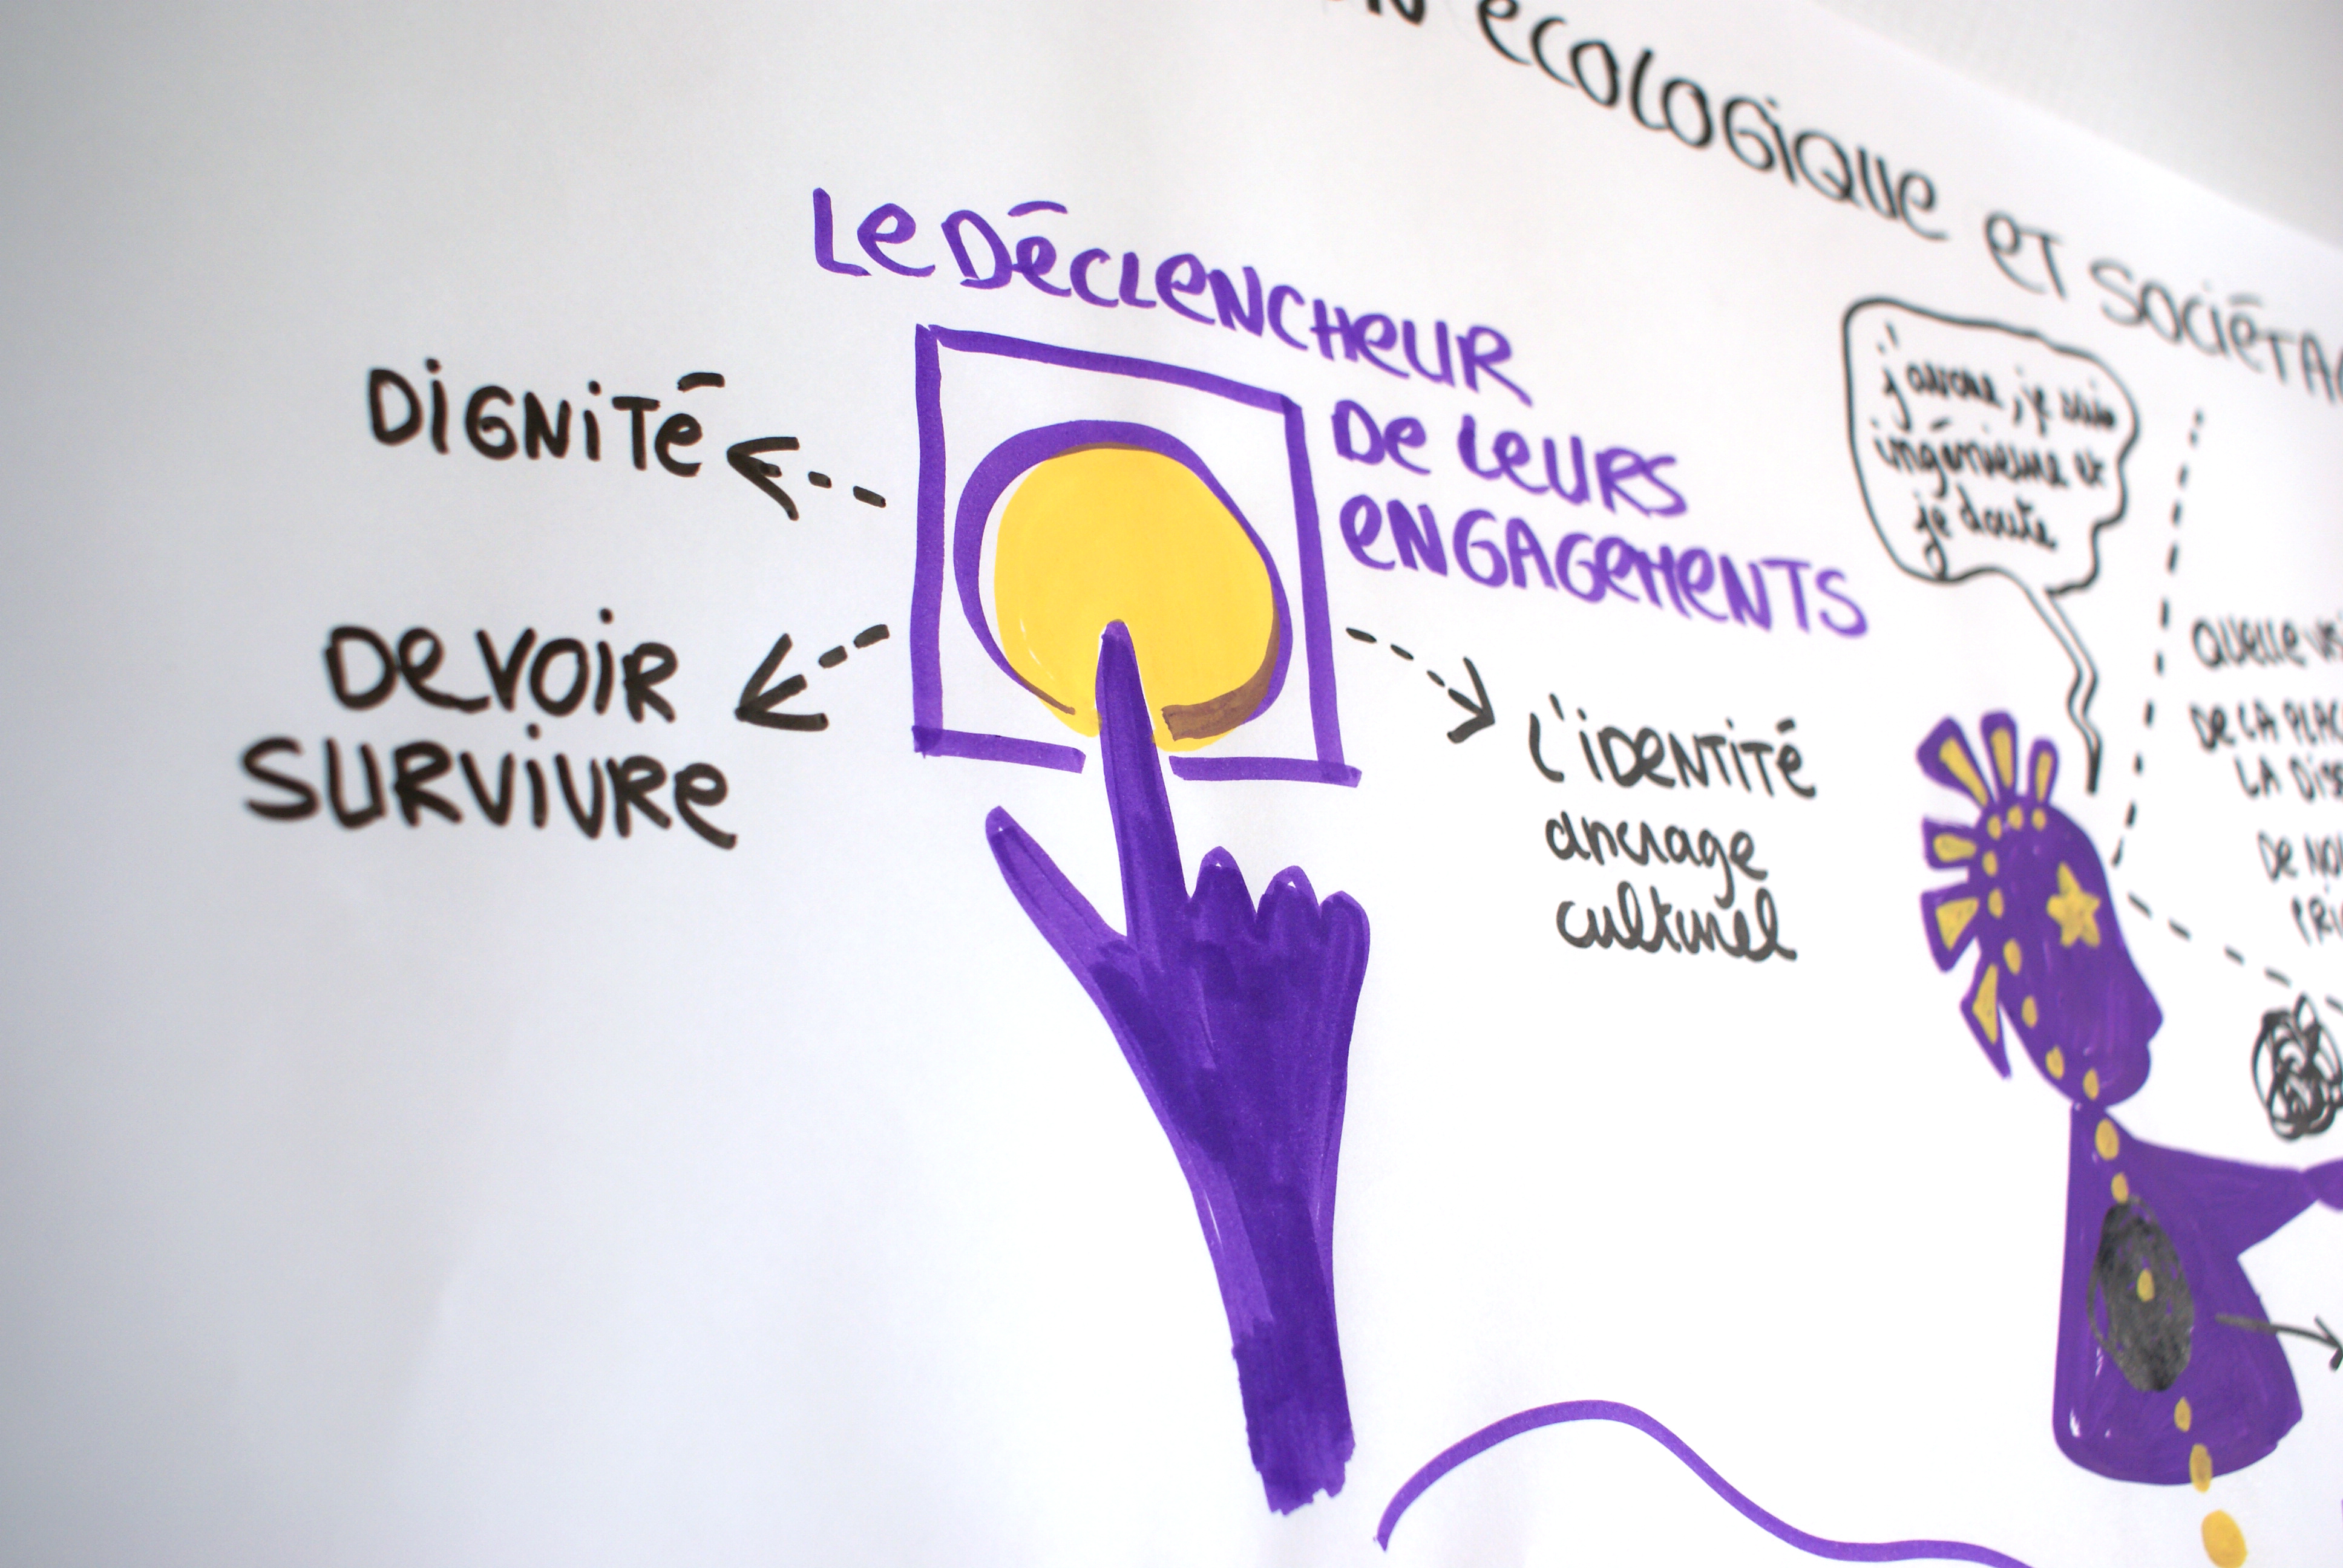 ÉCOLOGIQUE ET SOCIÉTA
LE DÉCLENCHEUR
DE LEURS
ENGAGEMENTS
DIGNITÉ
DEVOIR
SURVIVRE
L'IDENTITÉ
ancrage
culturel
j'avoue, je suis
ingénieure et
je doute
QUELLE
DE LA PLAC
LA
DE